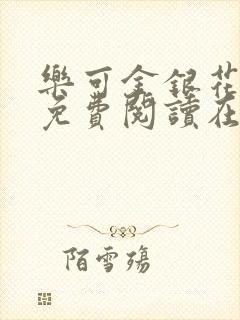 樂可金銀花
免費閱讀在
陌雪殤